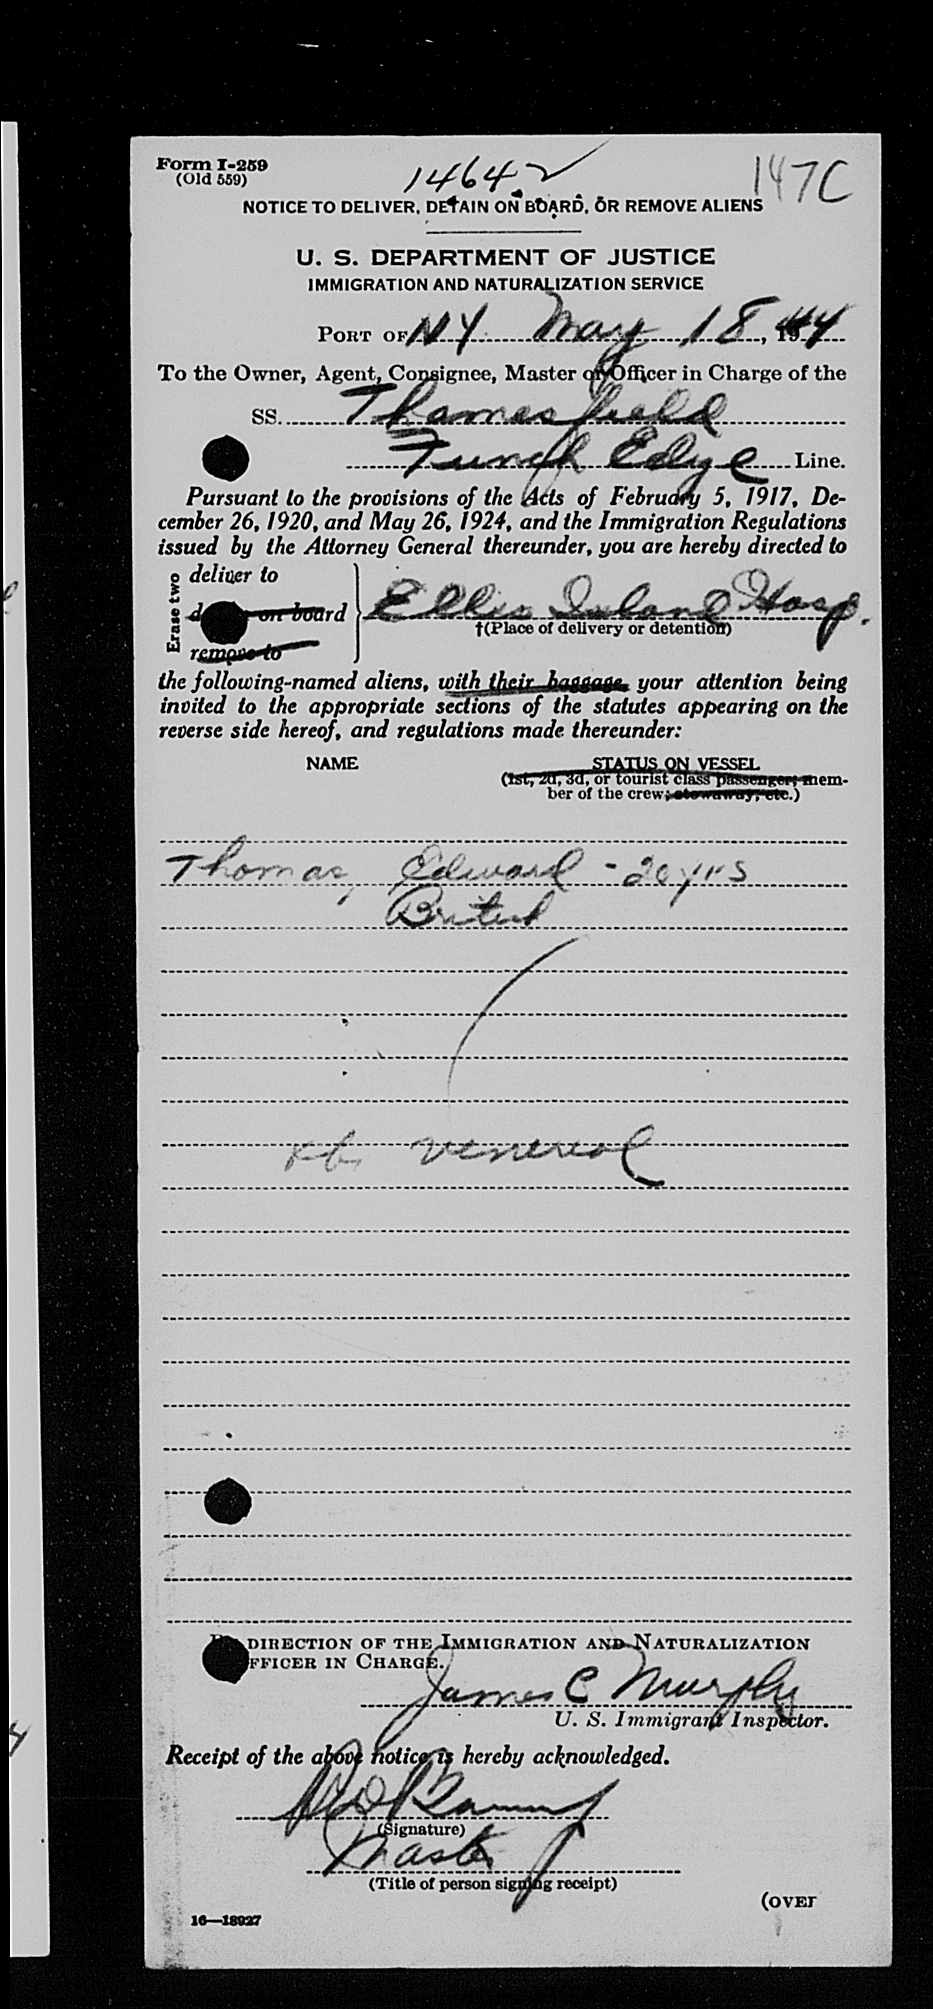 Form I-259
(Old 559)
14642
147C
NOTICE TO DELIVER, DETAIN ON BOARD, OR REMOVE ALIENS
U. S. DEPARTMENT OF JUSTICE
IMMIGRATION AND NATURALIZATION SERVICE
PORT OF NY May 18, 1944
To the Owner, Agent, Consignee, Master or Officer in Charge of the
SS. Thamesfield
Funch Edye Line.
Pursuant to the provisions of the Acts of February 5, 1917, De-
cember 26, 1920, and May 26, 1924, and the Immigration Regulations
issued by the Attorney General thereunder, you are hereby directed to
Erase two
deliver to
on board
remove to
Ellis Island Hosp.
†(Place of delivery or detention)
the following-named aliens, with their baggage, your attention being
invited to the appropriate sections of the statutes appearing on the
reverse side hereof, and regulations made thereunder:
NAME STATUS ON VESSEL
(1st, 2d, 3d, or tourist class passenger; mem-
ber of the crew; stowaway, etc.)
Thomas, Edward - 20 yrs
British
venereal
DIRECTION OF THE IMMIGRATION AND NATURALIZATION
FFICER IN CHARGE.
James C Murphy
U. S. Immigrant Inspector.
Receipt of the above notice is hereby acknowledged.
(Signature)
Master
(Title of person signing receipt)
(OVER
16—18927